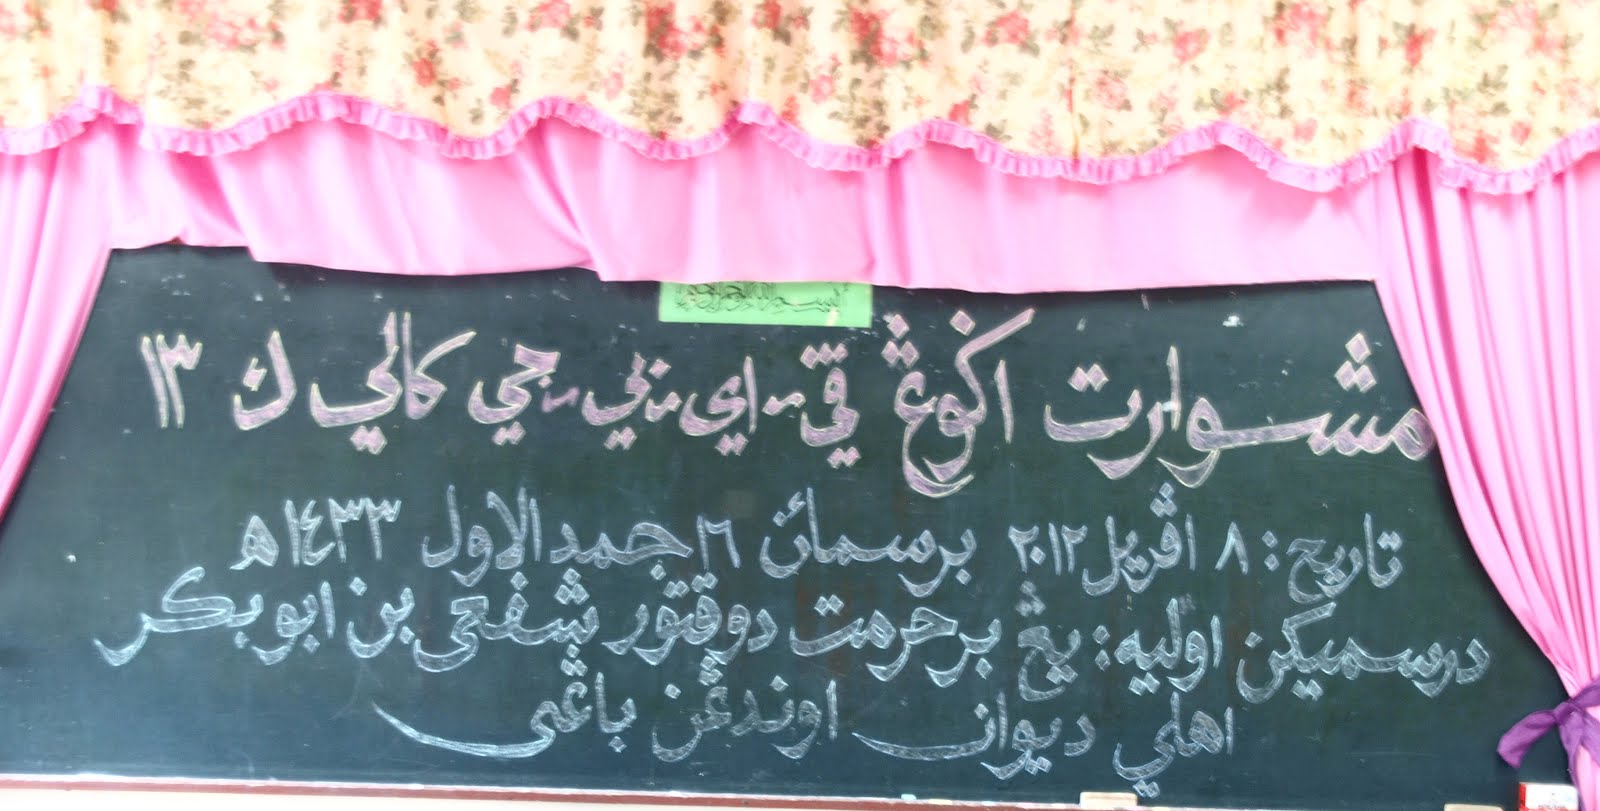 بسم الله الرحمن الرحيم
مشوارت اݢوڠ ڤي-اي-بي-جي کالي ك ١٣
تاريخ : ٨ اڤريل ٢٠١٢ برسمائن ١٦ جمدالاول ١٤٣٣ه
درسميکن اوليه : يڠ برحرمت دوقتور شفعي بن ابو بکر
اهلي ديوان اوندڠن باڠي